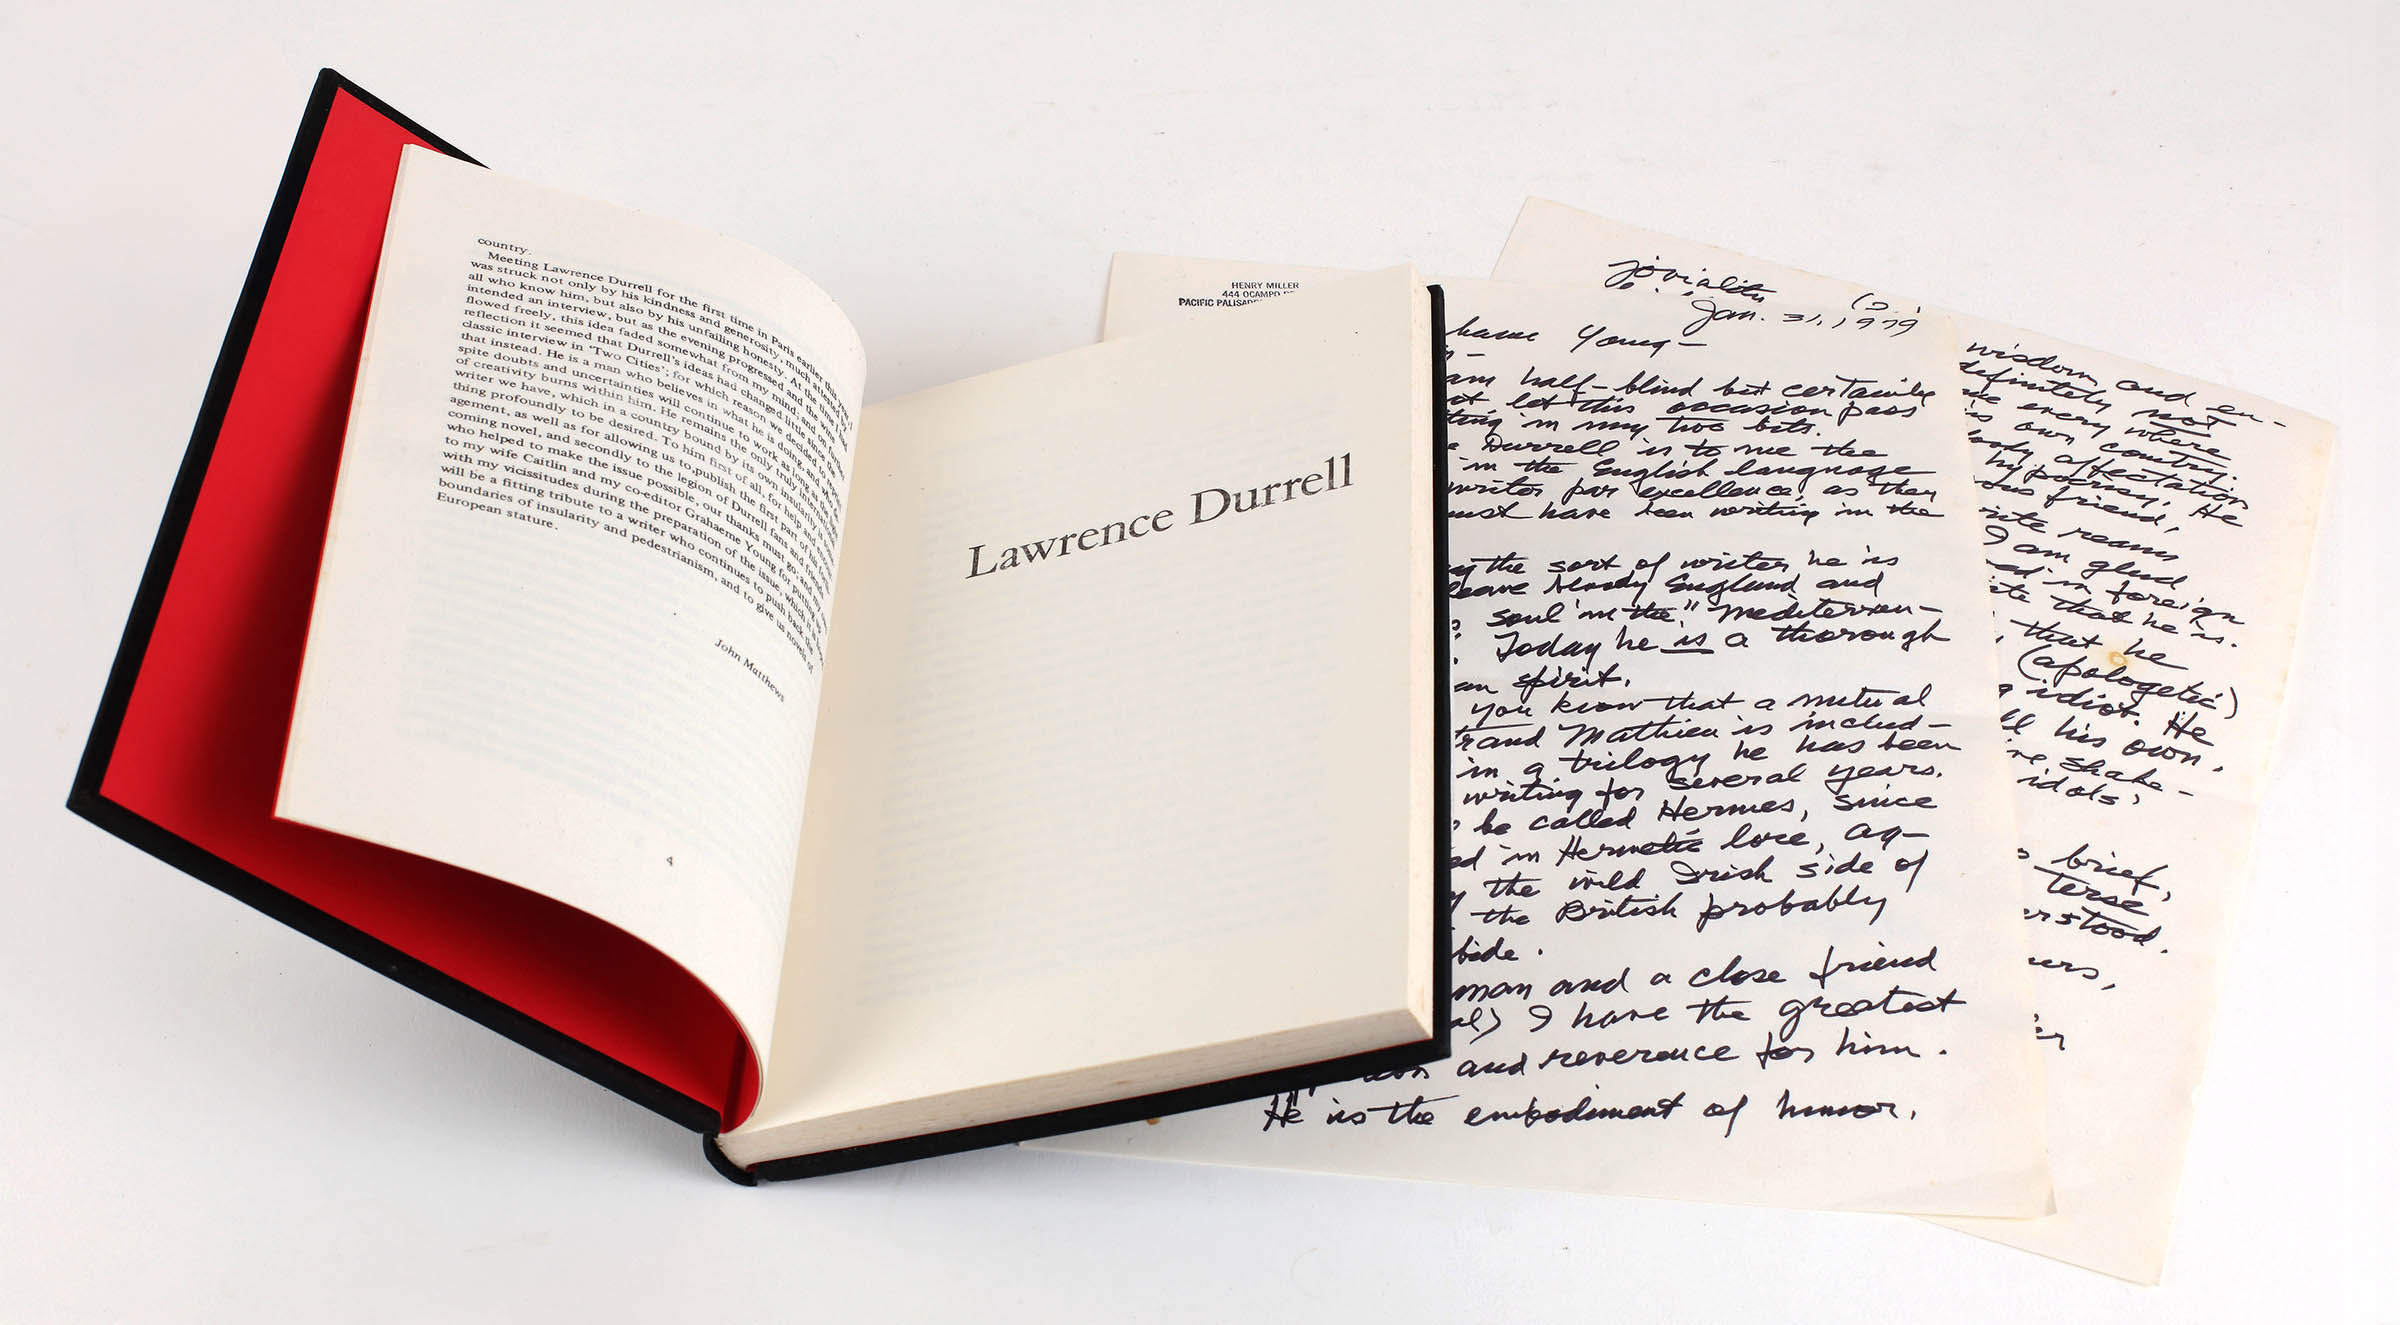 country.
Meeting Lawrence Durrell for the first time in Paris earlier this year, I
was struck not only by his kindness and generosity, much attested by
all who know him, but also by his unfailing honesty. At the time we had
intended an interview, but as the evening progressed and the wine
flowed freely, this idea faded somewhat from my mind; and on further
reflection it seemed that Durrell's ideas had changed little since the
classic interview in 'Two Cities'; for which reason we decided to reprint
that instead. He is a man who believes in what he is doing, and who de-
spite doubts and uncertainties will continue to work as long as the
of creativity burns within him. He remains the only truly international
writer we have, which in a country bound by its own insularity is some-
thing profoundly to be desired. To him first of all, for help and encour-
agement, as well as for allowing us to publish the first part of his forth-
coming novel, and secondly to the legion of Durrell fans and friends
who helped to make the issue possible, our thanks must go; and my own
to my wife Caitlin and my co-editor Grahaeme Young for putting up
with my vicissitudes during the preparation of the issue, which it is hoped
will be a fitting tribute to a writer who continues to push back the
boundaries of insularity and pedestrianism, and to give us novels of
European stature.
John Matthews
4
Lawrence Durrell
HENRY MILLER
444 OCAMPO
PACIFIC PALISADES
Jan. 31, 1979
Young —
am half-blind but certainly
let this occasion pass
in my two bits.
Durrell is to me the
in the English language
writer par excellence, as they
must have been writing in the
the sort of writer he is
leave bloody England and
soul in the "Mediterran-
Today he is a thorough
spirit.
you know that a mutual
Mathieu is includ-
in a trilogy he has been
writing for several years.
be called Hermes, since
in Hermetic lore,
the wild Irish side of
the British probably
bide.
man and a close friend
I have the greatest
and reverence for him.
He is the embodiment of humor,
joviality
wisdom and en-
definitely not
every where
his own country.
affectation
hypocrisy, He
friend,
reams
I am glad
in foreign
that he is.
that he
(apologetic)
idiot. He
his own.
shake-
idols,
brief,
terse